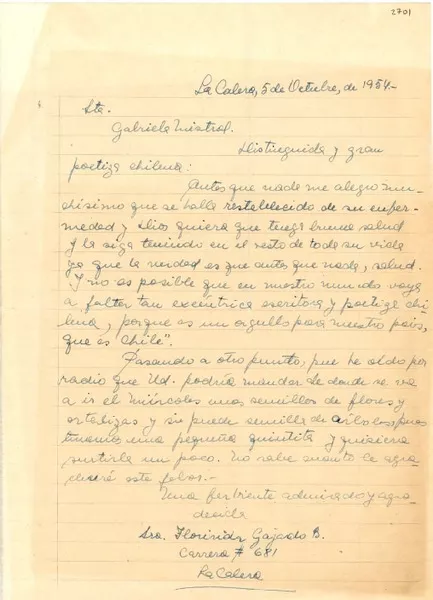 2701
La Calera, 5 de Octubre, de 1954.-
Sta.
Gabriela Mistral.
Distinguida y gran
poetiza chilena:
Antes que nada me alegro mu-
chisimo que se halla restablecido de su enfer-
medad y Dios quiera que tenga buena salud
y la siga teniendo en el resto de toda su vida
ya que la verdad es que antes que nada, salud.
Y no es posible que en nuestro mundo vaya
a faltar tan excéntrica escritora y poetiza chi-
lena, porque es un orgullo para nuestro país,
que es Chile".
Pasando a otro punto, pue he oído por
radio que Ud. podría mandar de donde se va
a ir el Miércoles unas semillas de flores y
ortalizas y si puede semilla de árboles, pues
tenemos una pequeña quintita y quisiera
surtirla un poco. No sabe cuanto le agra-
deceré este fabor.-
Una ferbiente admirada y agra-
decida
Sra. Florinda Gajardo B.
Carrera # 681
La Calera